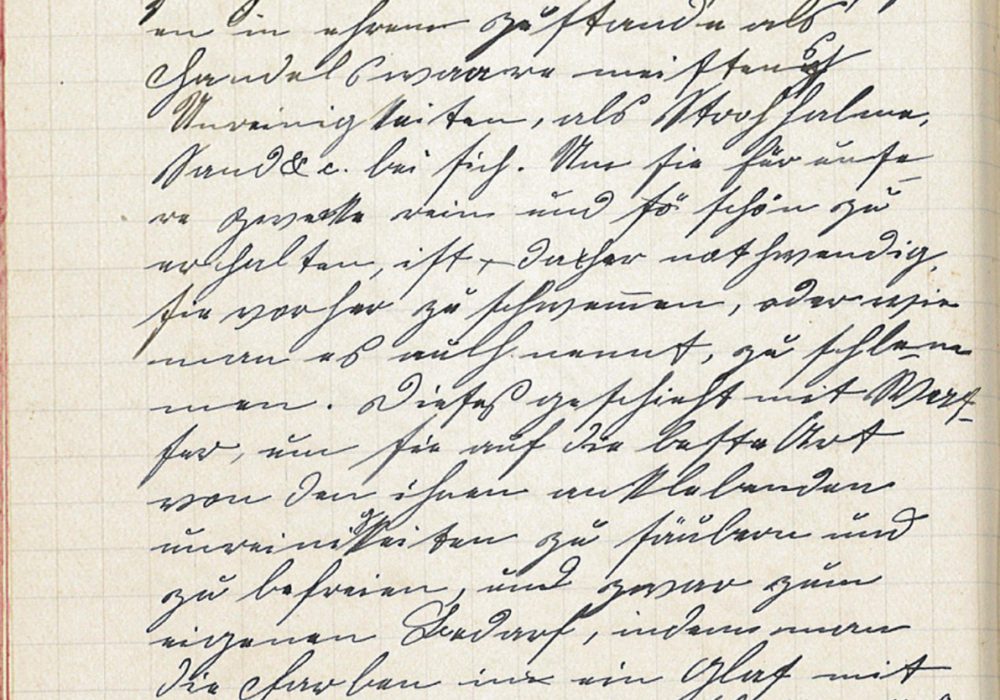 en in ihrem Zustande als
Handelswaare meistens
Unreinigkeiten, als Strohhalme,
Sand & c. bei sich. Um sie für unse-
re Zwecke rein und so schön zu
erhalten, ist daher nothwendig,
sie vorher zu schwem̄en, oder wie
man es auch nennt, zu schlem-
men. Dieses geschieht mit Was-
ser, um sie auf die beste Art
von den ihnen anklebenden
unreinigkeiten zu säubern und
zu befreien, und zwar zum
eigenen Bedarf, indem man
die Farben in ein Glas mit